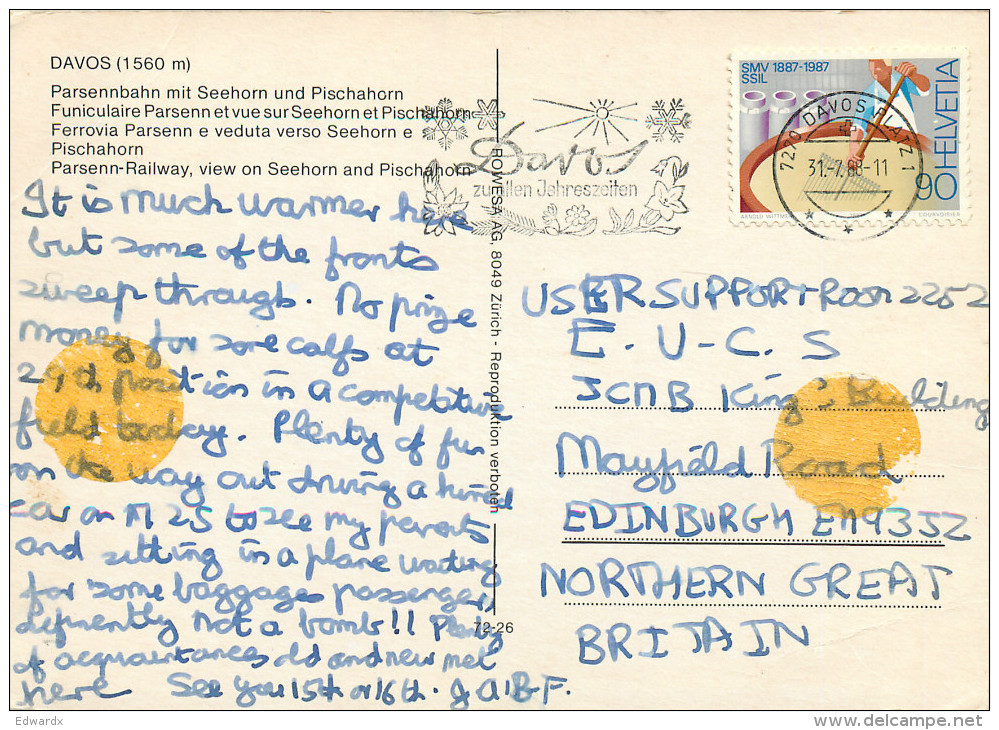 DAVOS (1560 m)
Parsennbahn mit Seehorn und Pischahorn
Funiculaire Parsenn et vue sur Seehorn et Pischahorn
Ferrovia Parsenn e veduta verso Seehorn e
Pischahorn
Parsenn-Railway, view on Seehorn and Pischahorn
It is much warmer here
but some of the fronts
sweep through. No prize
money for sore calfs at
29th position in a competitive
field today. Plenty of fun
on the way out driving a hired
Car on M25 to see my parents
and sitting in a plane waiting
for some baggages passenger,
definently not a bomb!! Plenty
of acquaintances old and new met
here See you 15th or 16th. J.A.B.F.
Davos
zu allen Jahreszeiten
SMV 1887-1987
SSIL
HELVETIA
90
7270 DAVOS PLATZ 1
31.-7.88-11
ARNOLD WITTMER
COURVOISIER
ROWESA AG, 8049 Zürich - Reproduktion verboten
72-26
USER SUPPORT ROOM 2252
E. U-C. S
JCMB King's Building
Mayfield Road
EDINBURGH EH9 3JZ
NORTHERN GREAT
BRITAIN
Edwardx
delcampe.net